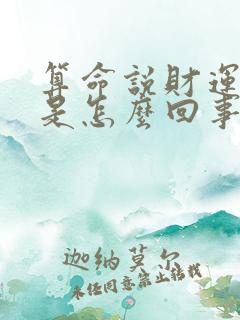 算命説財運
是怎麼回事
迦納莫尔
未经同意禁止转载